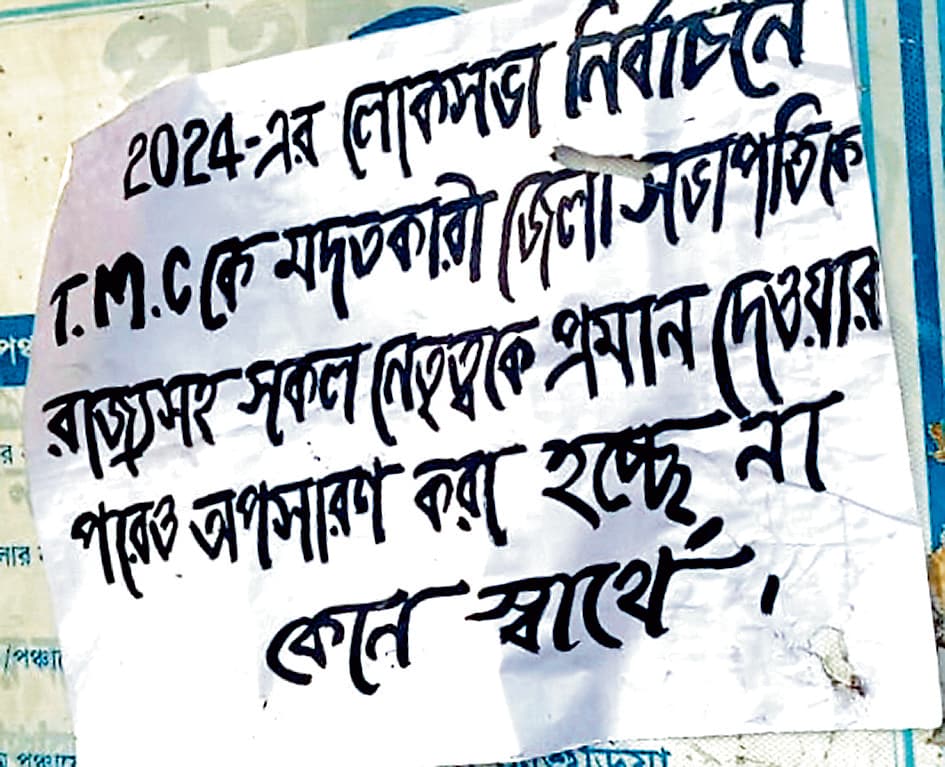 2024-এর লোকসভা নির্বাচনে
T.M.C কে মদতকারী জেলা সভাপতিকে
রাজ্যসং সকল নেতৃত্বকে প্রমান দেওয়ার
পরেও অপসারণ করা হচ্ছে না
কেন স্বার্থে।